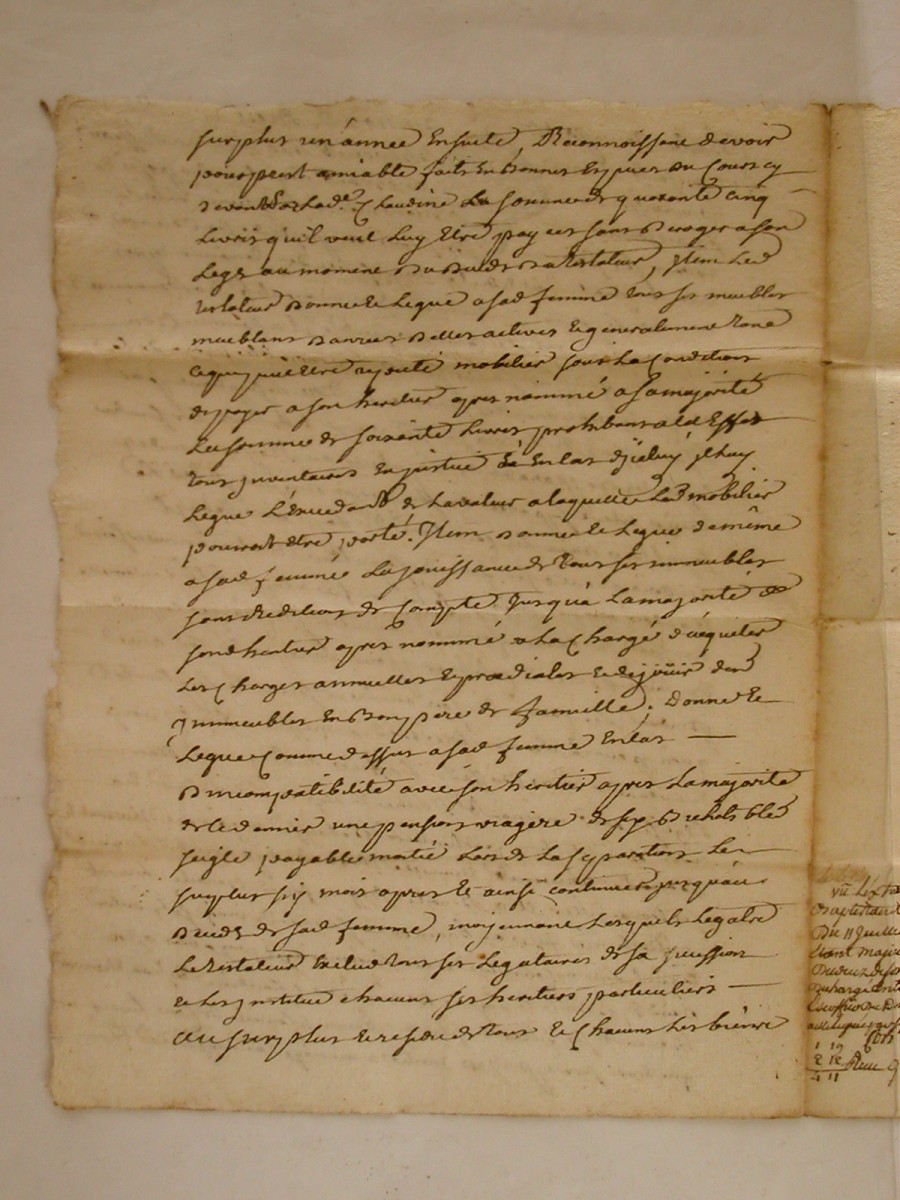 surplus un'année Ensuite, Reconnoissant devoir
pour prest amiable faits En bonnes Espces du Cours cy
devant a lade Claudine La somme de quarante cinq
Livres qu'il veut Luy Etre payées sans Deroger a son
Legs au moment du Deces du Testateur, Item Led
testateur donne et Legue a sad femme tous ses meubles
meublans danrées dettes actives et generalement tout
ce qui peut Etre reputé mobilier sous La Condition
de payer a son heritier apres nommé a sa majorité
La somme de soixante Livres prohibant a cet Effet
tous inventaires En justice Et En Cas d'jcelluy jl luy
Legue L'Excedant de La valeur a laquelle Led mobilier
pourroit Etre porté. Item donne et Legue de même
a sad femme La jouissance de Tous ses immeubles
sans reddition de Compte Jusqu'a La majorité de
sond heritier apres nommé a La Charge d'acquiter
Les Charges annuelles et prædiales et de joüir desd
Jmmeubles En Bon pere de famille; Donne et
Legue Comme dessus a sad femme En Cas
D'incompatibilité avec son heritier apres La majorité
de ce dernier une pension viagere de six Bichets bled
seigle payable moitié Lors de La separation Le
surplus six mois apres et ainsi continuer jusqu'au
Deces de sad femme, moyennant Lesquels Legats
Le testateur Exclud tous ses Legataires de sa succession
et Les Jnstitue chacuns ses heritiers particuliers
Au surplus et residu de tous Et Chacuns Les biens
vû L'ext
Baptistaire
Du 11 Juillet
1 19
2 12
4 11